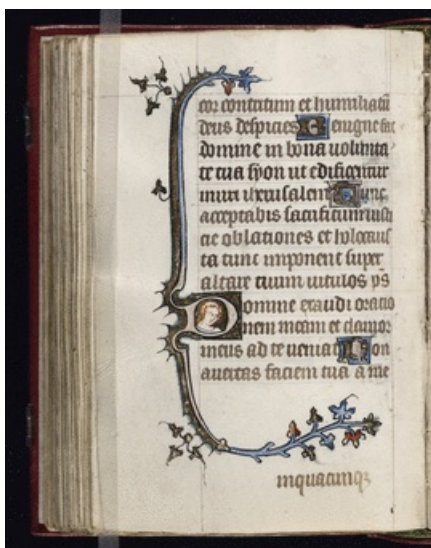 cor contritum et humiliatū
deus despicies Benigne fac
domine in bona uolunta
te tua syon ut edificentur
muri iherusalem Tunc
acceptabis sacrificium iusti
cie oblationes et holocaus
ta tunc imponent super
altare tuum uitulos ps
Domine exaudi oratio
nem meam et clamor
meus ad te ueniat Non
auertas faciem tua a me
inquacumqꝫ